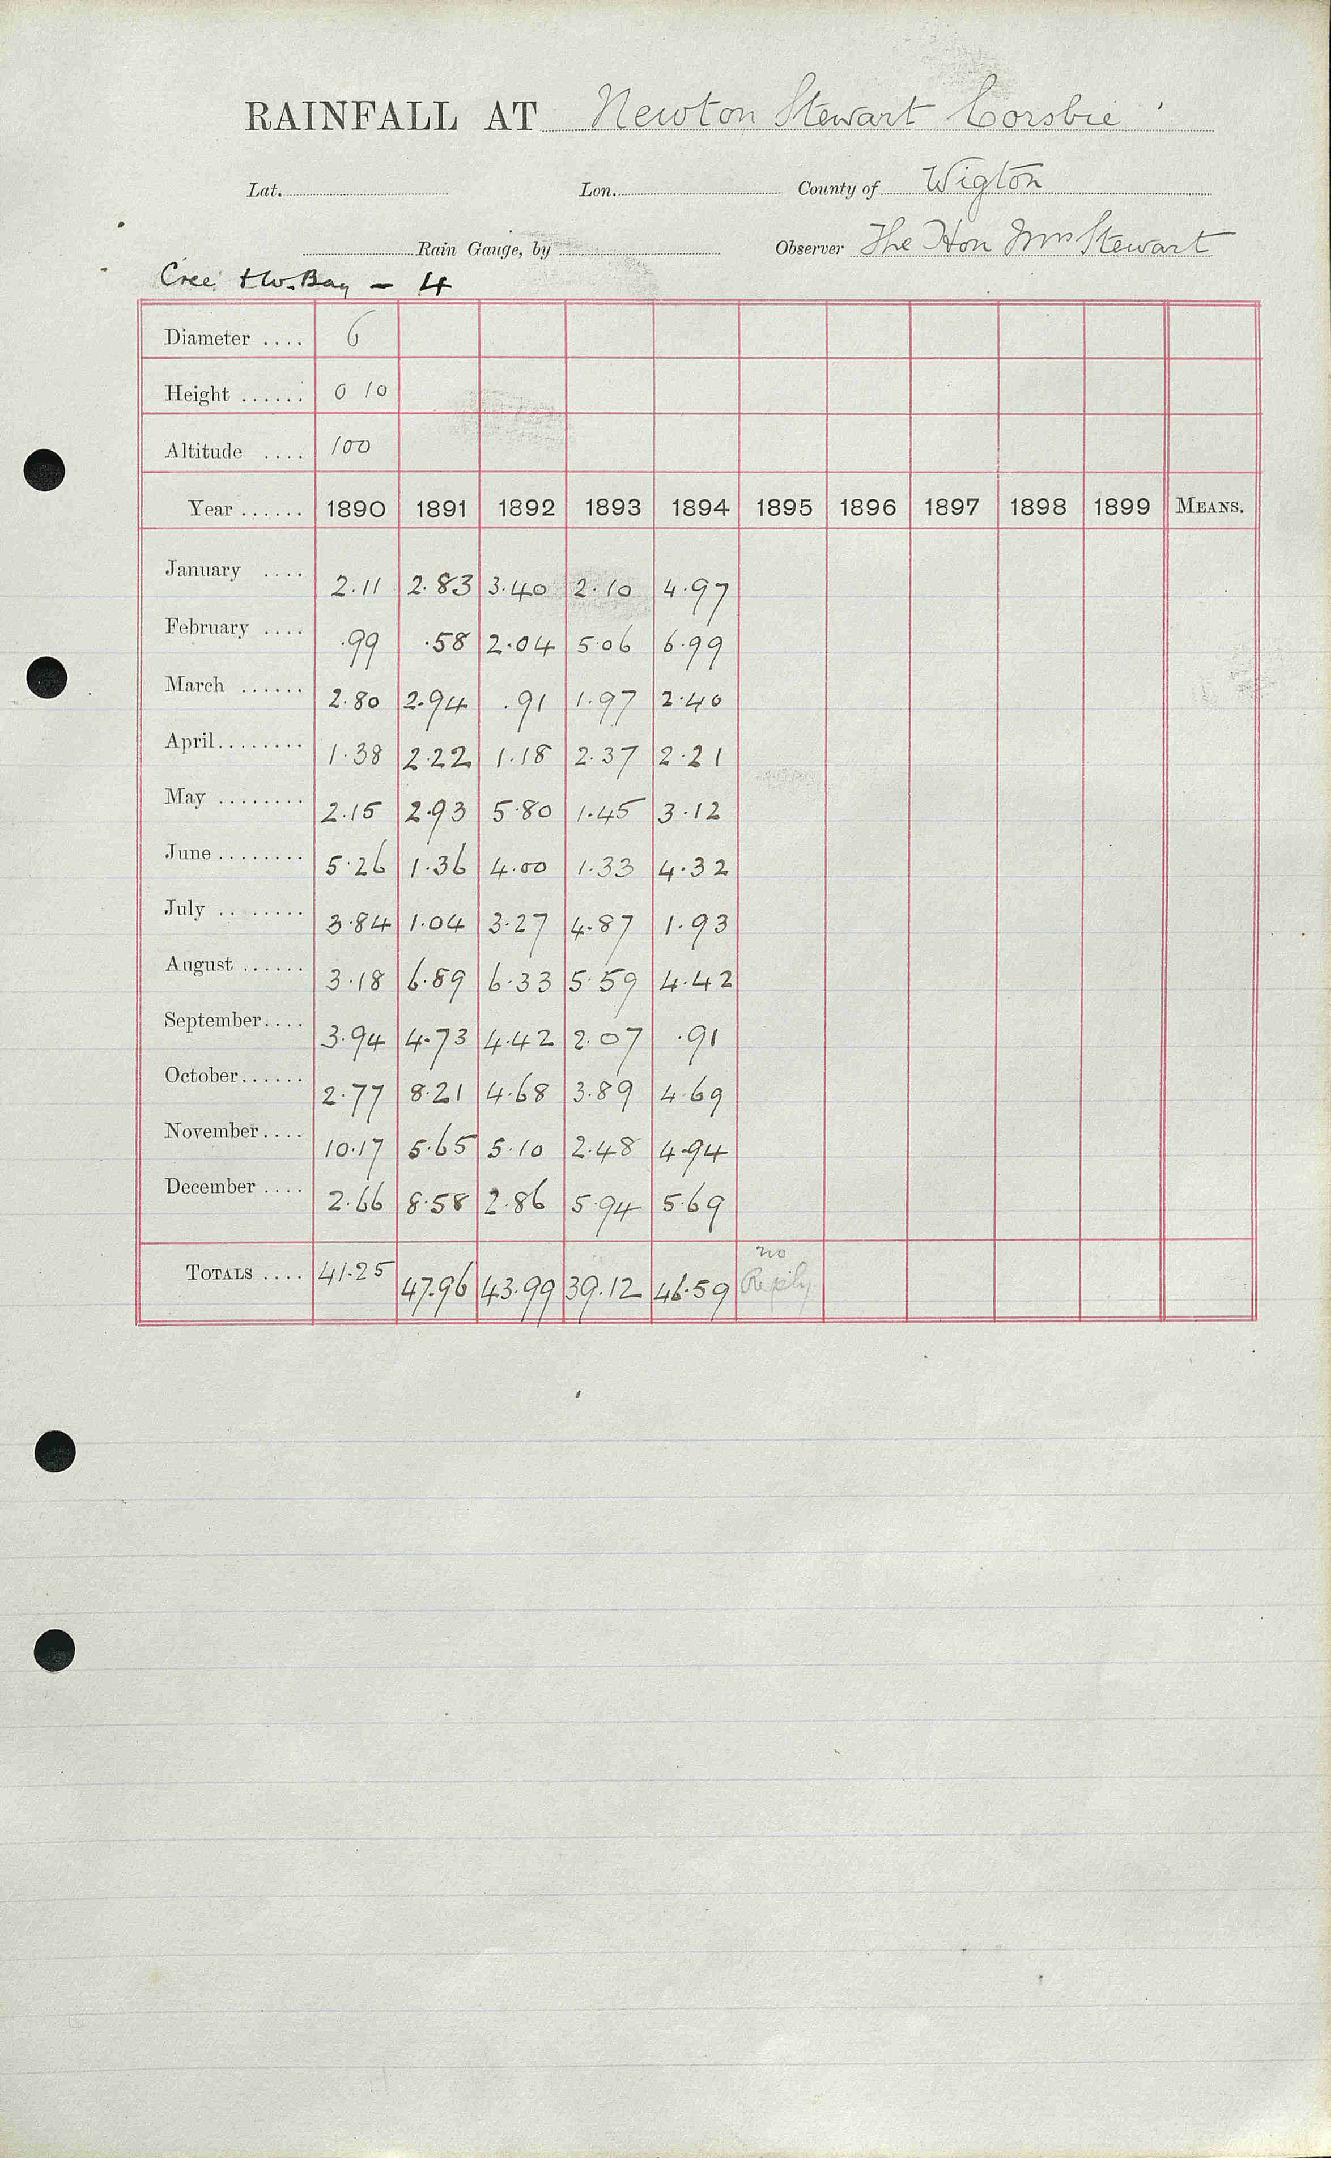 RAINFALL AT Newton Stewart Corsbie
Lat. Lon. County of Wigton
Rain Gauge, by Observer The Hon Mrs Stewart
Cree + W. Bay - 4
Diameter .... 6
Height ...... 0 10
Altitude .... 100
Year ...... 1890 1891 1892 1893 1894 1895 1896 1897 1898 1899 MEANS.
January .... 2.11 2.83 3.40 2.10 4.97
February .... .99 .58 2.04 5.06 6.99
March ...... 2.80 2.94 .91 1.97 2.40
April........ 1.38 2.22 1.18 2.37 2.21
May ........ 2.15 2.93 5.80 1.45 3.12
June ........ 5.26 1.36 4.00 1.33 4.32
July ........ 3.84 1.04 3.27 4.87 1.93
August ...... 3.18 6.89 6.33 5.59 4.42
September.... 3.94 4.73 4.42 2.07 .91
October...... 2.77 8.21 4.68 3.89 4.69
November.... 10.17 5.65 5.10 2.48 4.94
December .... 2.66 8.58 2.86 5.94 5.69
TOTALS .... 41.25 47.96 43.99 39.12 46.59 no Reply